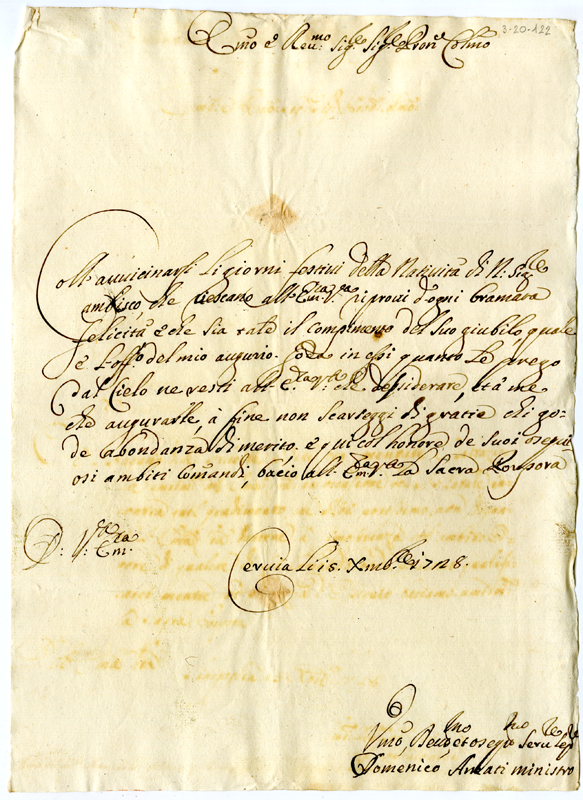 3-20-422
Emo e Reu:mo Sig:re Sig:re Pron:e Colmo
Coll' auuicinarsi li giorni festiui della Natiuità di N: Sig:re
ambisco, che riescano all' Em:za V:ra ripieni d'ogni bramata
felicità e che sia tale il compimento del suo giubilo, quale
è l'off:o del mio augurio. Goda in essi quanto le prego
dal Cielo ne resti all' E:za V:ra che desiderare, et à me
che augurarle, à fine non scarseggi di gracie chi go=
de abondanza di merito. e qui col honore de suoi osequi
osi ambiti Comandi, bacio all' Em:za V:ra la Sacra Porpora
D: V:ra Em:za
Ceruia li 15. Xmb:re 1728.
Vmo Deu:mo et osequ:mo Seru:re
Domenico Amati ministro